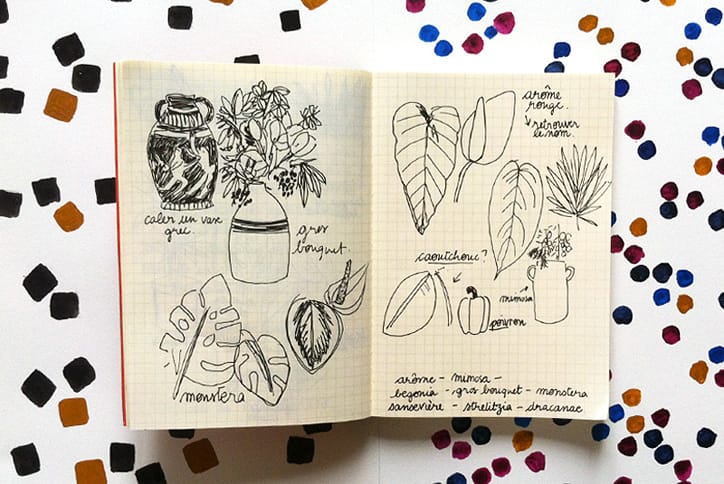 caler un vase
grec.
gros
bouquet.
monstera
arôme
rouge.
↓ retrouver
le nom.
caoutchouc ?
mimosa
poivron
arôme - mimosa -
begonia - gros bouquet - monstera
sansevière - strelitzia - dracanae